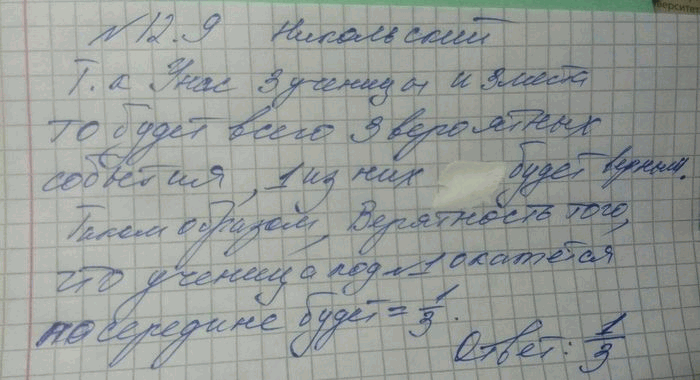 верситет
N 12.9 Никольский
Т. к У нас 3 ученицы и 3 места
то будет всего 3 вероятных
события, 1 из них будет верным.
Таким образом, Верятность того,
что ученица под N1 окажется
посередине будет = 1/3.
Ответ: 1/3